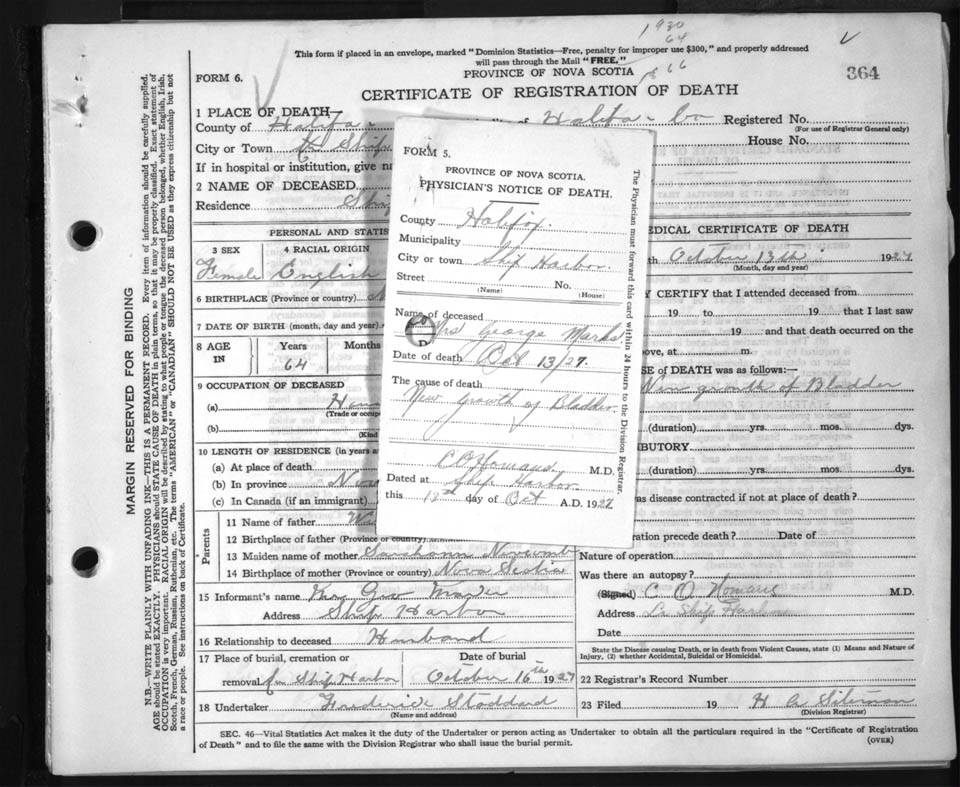 1930
64
1866
This form if placed in an envelope, marked "Dominion Statistics—Free, penalty for improper use $300," and properly addressed
will pass through the Mail "FREE."
PROVINCE OF NOVA SCOTIA
FORM 6.
364
CERTIFICATE OF REGISTRATION OF DEATH
1 PLACE OF DEATH—
County of Halifa
of Halifa Co Registered No.
(For use of Registrar General only)
City or Town Ship
House No.
If in hospital or institution, give na
2 NAME OF DECEASED
Residence Ship
PERSONAL AND STATIS
3 SEX 4 RACIAL ORIGIN
Female English
6 BIRTHPLACE (Province or country)
7 DATE OF BIRTH (month, day and year)
8 AGE IN Years Months
64
9 OCCUPATION OF DECEASED
(a)
(Trade or occup
(b)
(Kind
10 LENGTH OF RESIDENCE (in years a
(a) At place of death
(b) In province
(c) In Canada (if an immigrant)
Parents
11 Name of father
12 Birthplace of father (Province or country)
13 Maiden name of mother Sarahann Newcomb
14 Birthplace of mother (Province or country) Nova Scotia
15 Informant's name Geo
Address Ship Harbor
16 Relationship to deceased Husband
17 Place of burial, cremation or Date of burial
removal Ship Harbor October 16th 1927
18 Undertaker Frederick Stoddard
(Name and address)
FORM 5.
PROVINCE OF NOVA SCOTIA.
PHYSICIAN'S NOTICE OF DEATH.
County Halifax.
Municipality
City or town Ship Harbor.
Street No.
(Name) (House)
Name of deceased
Mrs George Marks
D
Date of death Oct 13/27.
The cause of death
New Growth of Bladder.
C O Homans. M.D.
Dated at Ship Harbor
this 13th day of Oct A.D. 1927
The Physician must forward this card within 24 hours to the Division Registrar.
EDICAL CERTIFICATE OF DEATH
th October 13th 1927
(Month, day and year)
Y CERTIFY that I attended deceased from
19 to 19 that I last saw
19 and that death occurred on the
ove, at m.
SE OF DEATH was as follows:—
New growth of Bladder
(duration) yrs. mos. dys.
BUTORY.
(duration) yrs. mos. dys.
as disease contracted if not at place of death?
ration precede death? Date of
Nature of operation
Was there an autopsy?
(Signed) C O Homans M.D.
Address Ship Harbour
Date
State the Disease causing Death, or in death from Violent Causes, state (1) Means and Nature of
Injury, (2) whether Accidental, Suicidal or Homicidal.
22 Registrar's Record Number
23 Filed 19 H
(Division Registrar)
SEC. 46—Vital Statistics Act makes it the duty of the Undertaker or person acting as Undertaker to obtain all the particulars required in the "Certificate of Registration
of Death" and to file the same with the Division Registrar who shall issue the burial permit.
(OVER)
MARGIN RESERVED FOR BINDING
N.B.—WRITE PLAINLY WITH UNFADING INK—THIS IS A PERMANENT RECORD. Every item of information should be carefully supplied.
AGE should be stated EXACTLY. PHYSICIANS should STATE CAUSE OF DEATH in plain terms, so that it may be properly classified. Exact statement of
OCCUPATION is very important. RACIAL ORIGIN will be described by stating to what people or tongue the deceased person belonged, whether English, Irish,
Scotch, French, German, Russian, Ruthenian, etc. The terms "AMERICAN" or "CANADIAN" SHOULD NOT BE USED as they express citizenship but not
a race or people. See instructions on back of Certificate.